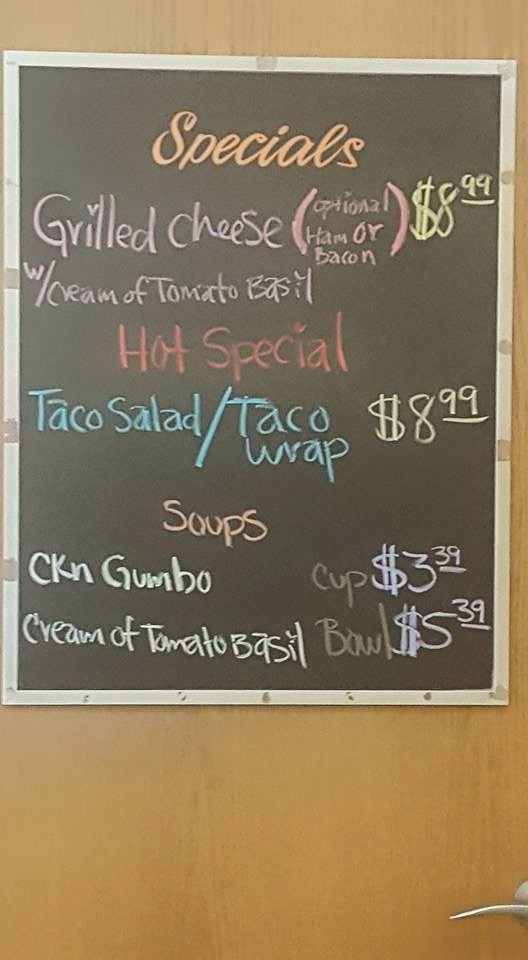 Specials
Grilled Cheese (optional Ham Or Bacon) $8.99
w/Cream of Tomato Basil
Hot Special
Taco Salad/Taco wrap $8.99
Soups
CKn Gumbo Cup $3.39
Cream of Tomato Basil Bowl $5.39